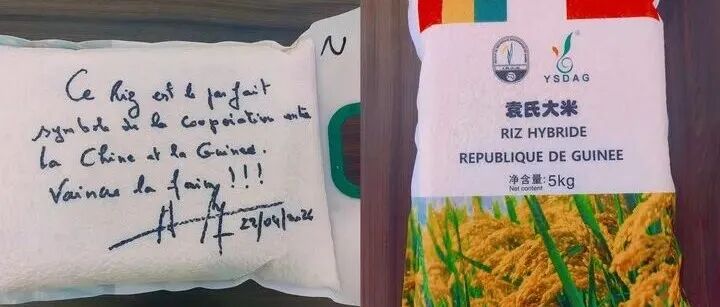 N
Ce Riz est le parfait
symbole de la coopération entre
la Chine et la Guinée.
Vaincre la faim !!!
22/04/2026
YSDAG
袁氏大米
RIZ HYBRIDE
REPUBLIQUE DE GUINEE
净含量: 5kg
Net content